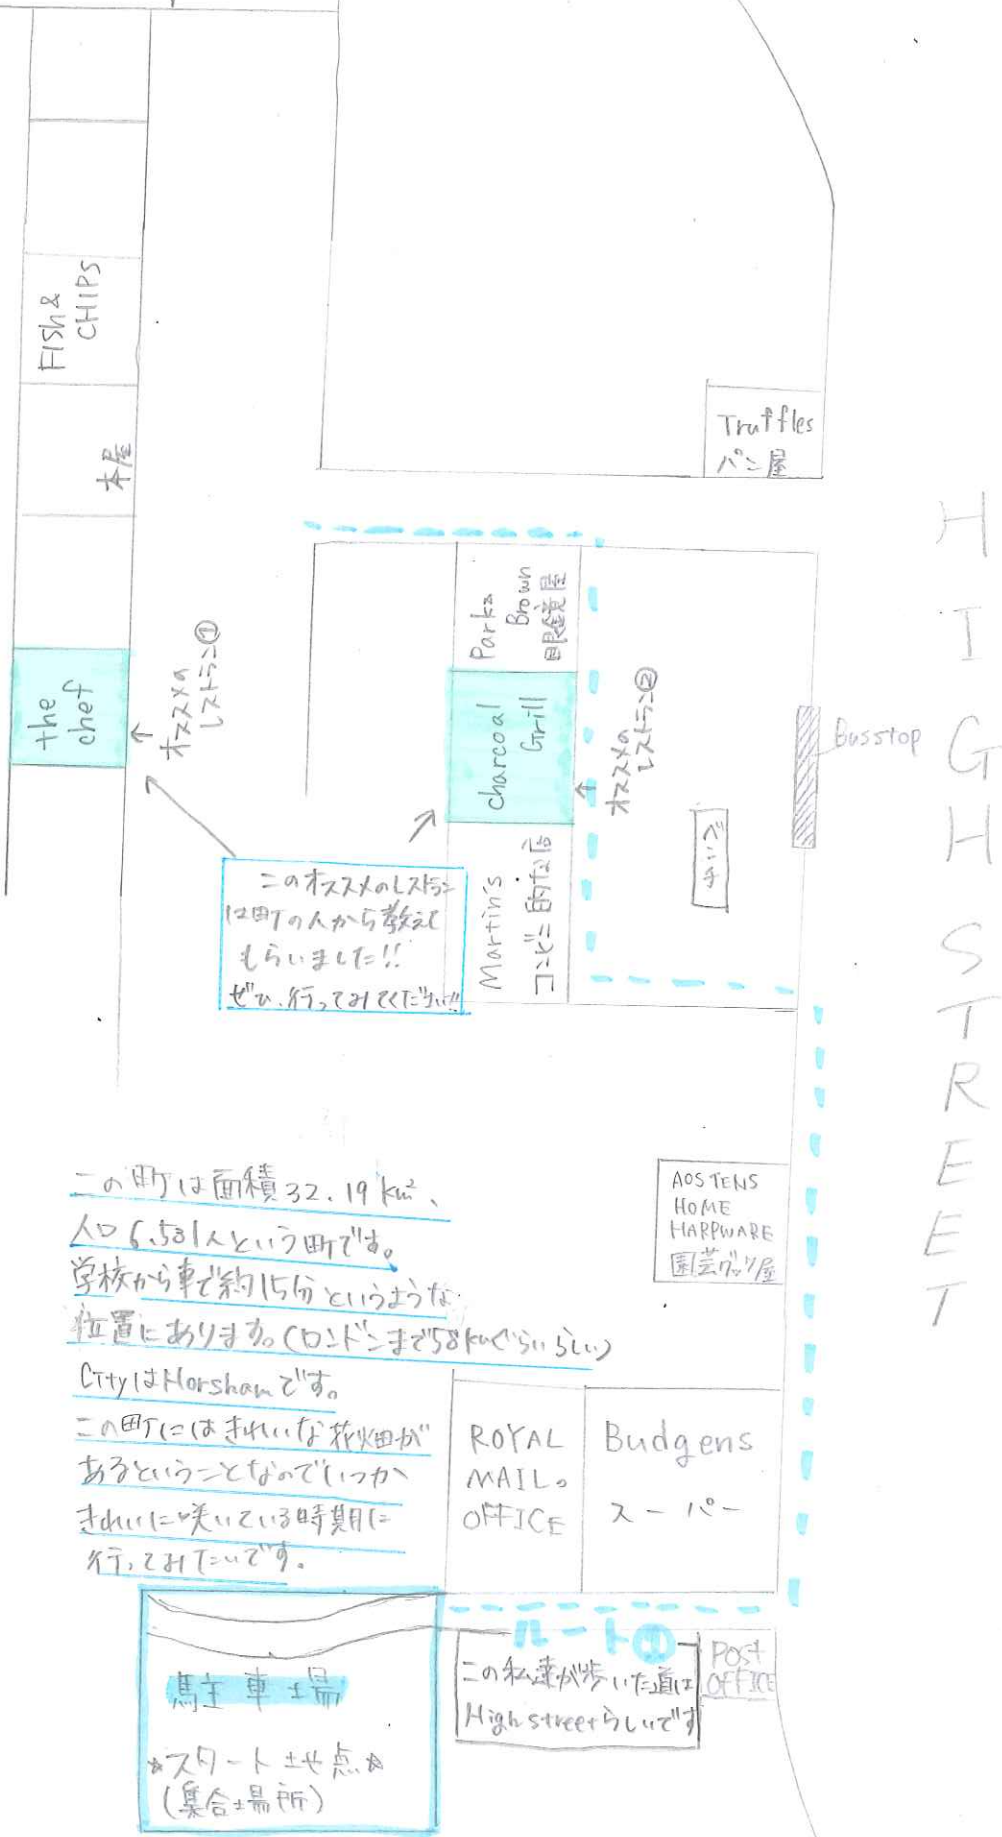 FISh &
CHIPS
本屋
the
chef
オススメの
レストラン①
Truffles
パン屋
Parks
Brown
眼鏡屋
charcoal
Grill
オススメの
レストラン②
Martin's
コンビニ的な店
Busstop
HIGH STREET
このオススメのレストラン
は町の人から教えて
もらいました!!
ぜひ、行ってみてください!!
AOSTENS
HOME
HARPWARE
園芸グッツ屋
この町は面積32.19km²、
人口6.581人という町です。
学校から車で約15分というような
位置にあります。(ロンドンまで58kmぐらいらしい)
CityはHorshamです。
この町にはきれいな花畑が
あるということなのでいつか
きれいに咲いている時期に
行ってみたいです。
ROYAL
MAIL。
OFFICE
Budgens
スーパー
ルート①
この私達が歩いた道は
High streetらしいです
Post
OFFICE
駐車場
☆スタート地点☆
(集合場所)